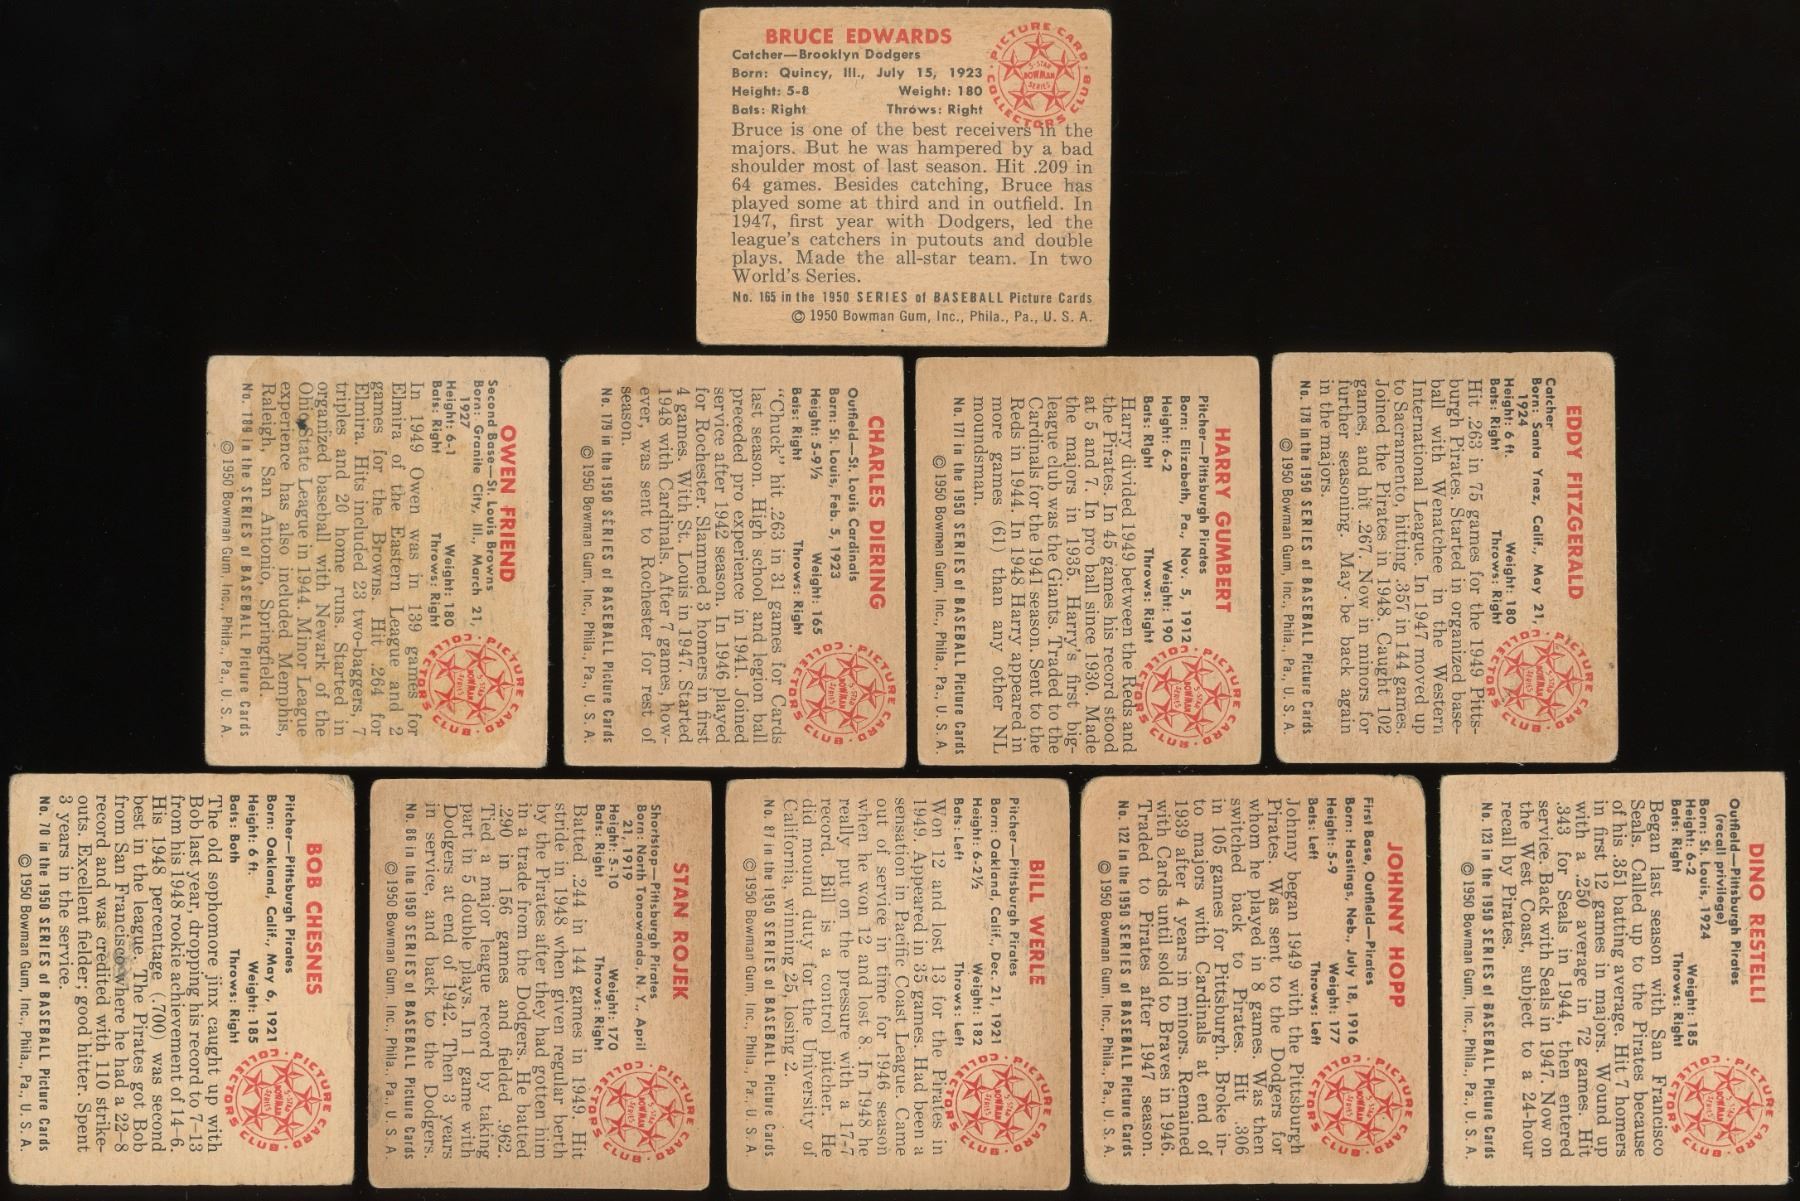 BRUCE EDWARDS
Catcher—Brooklyn Dodgers
Born: Quincy, Ill., July 15, 1923
Height: 5-8 Weight: 180
Bats: Right Throws: Right
PICTURE CARD COLLECTORS CLUB
5-STAR BOWMAN SERIES
Bruce is one of the best receivers in the
majors. But he was hampered by a bad
shoulder most of last season. Hit .209 in
64 games. Besides catching, Bruce has
played some at third and in outfield. In
1947, first year with Dodgers, led the
league's catchers in putouts and double
plays. Made the all-star team. In two
World's Series.
No. 165 in the 1950 SERIES of BASEBALL Picture Cards
© 1950 Bowman Gum, Inc., Phila., Pa., U. S. A.
OWEN FRIEND
Second Base—St. Louis Browns
Born: Granite City, Ill., March 21,
1927
Height: 6-1 Weight: 180
Bats: Right Throws: Right
PICTURE CARD COLLECTORS CLUB
5-STAR BOWMAN SERIES
In 1949 Owen was in 139 games for
Elmira of the Eastern League and 2
games for the Browns. Hit .264 for
Elmira. Hits included 23 two-baggers, 7
triples and 20 home runs. Started in
organized baseball with Newark of the
Ohio State League in 1944. Minor League
experience has also included Memphis,
Raleigh, San Antonio, Springfield.
No. 189 in the 1950 SERIES of BASEBALL Picture Cards
© 1950 Bowman Gum, Inc., Phila., Pa., U. S. A.
CHARLES DIERING
Outfield—St. Louis Cardinals
Born: St. Louis, Feb. 5, 1923
Height: 5-9½ Weight: 165
Bats: Right Throws: Right
PICTURE CARD COLLECTORS CLUB
5-STAR BOWMAN SERIES
"Chuck" hit .263 in 31 games for Cards
last season. High school and legion ball
preceded pro experience in 1941. Joined
service after 1942 season. In 1946 played
for Rochester. Slammed 3 homers in first
4 games. With St. Louis in 1947. Started
1948 with Cardinals. After 7 games, how-
ever, was sent to Rochester for rest of
season.
No. 179 in the 1950 SERIES of BASEBALL Picture Cards
© 1950 Bowman Gum, Inc., Phila., Pa., U. S. A.
HARRY GUMBERT
Pitcher—Pittsburgh Pirates
Born: Elizabeth, Pa., Nov. 5, 1912
Height: 6-2 Weight: 190
Bats: Right Throws: Right
PICTURE CARD COLLECTORS CLUB
5-STAR BOWMAN SERIES
Harry divided 1949 between the Reds and
the Pirates. In 45 games his record stood
at 5 and 7. In pro ball since 1930. Made
the majors in 1935. Harry's first big-
league club was the Giants. Traded to the
Cardinals for the 1941 season. Sent to the
Reds in 1944. In 1948 Harry appeared in
more games (61) than any other NL
moundsman.
No. 171 in the 1950 SERIES of BASEBALL Picture Cards
© 1950 Bowman Gum, Inc., Phila., Pa., U. S. A.
EDDY FITZGERALD
Catcher
Born: Santa Ynez, Calif., May 21,
1924
Height: 6 ft. Weight: 180
Bats: Right Throws: Right
PICTURE CARD COLLECTORS CLUB
5-STAR BOWMAN SERIES
Hit .263 in 75 games for the 1949 Pitts-
burgh Pirates. Started in organized base-
ball with Wenatchee in the Western
International League. In 1947 moved up
to Sacramento, hitting .357 in 144 games.
Joined the Pirates in 1948. Caught 102
games, and hit .267. Now in minors for
further seasoning. May be back again
in the majors.
No. 178 in the 1950 SERIES of BASEBALL Picture Cards
© 1950 Bowman Gum, Inc., Phila., Pa., U. S. A.
BOB CHESNES
Pitcher—Pittsburgh Pirates
Born: Oakland, Calif., May 6, 1921
Height: 6 ft. Weight: 185
Bats: Both Throws: Right
PICTURE CARD COLLECTORS CLUB
5-STAR BOWMAN SERIES
The old sophomore jinx caught up with
Bob last year, dropping his record to 7-13
from his 1948 rookie achievement of 14-6.
His 1948 percentage (.700) was second
best in the league. The Pirates got Bob
from San Francisco where he had a 22-8
record and was credited with 110 strike-
outs. Excellent fielder; good hitter. Spent
3 years in the service.
No. 70 in the 1950 SERIES of BASEBALL Picture Cards
© 1950 Bowman Gum, Inc., Phila., Pa., U. S. A.
STAN ROJEK
Shortstop—Pittsburgh Pirates
Born: North Tonawanda, N. Y., April
21, 1919
Height: 5-10 Weight: 170
Bats: Right Throws: Right
PICTURE CARD COLLECTORS CLUB
5-STAR BOWMAN SERIES
Batted .244 in 144 games in 1949. Hit
stride in 1948 when given regular berth
by the Pirates after they had gotten him
in a trade from the Dodgers. He batted
.290 in 156 games and fielded .962.
Tied a major league record by taking
part in 5 double plays. In 1 game with
Dodgers at end of 1942. Then 3 years
in service, and back to the Dodgers.
No. 86 in the 1950 SERIES of BASEBALL Picture Cards
© 1950 Bowman Gum, Inc., Phila., Pa., U. S. A.
BILL WERLE
Pitcher—Pittsburgh Pirates
Born: Oakland, Calif., Dec. 21, 1921
Height: 6-2½ Weight: 182
Bats: Left Throws: Left
PICTURE CARD COLLECTORS CLUB
5-STAR BOWMAN SERIES
Won 12 and lost 13 for the Pirates in
1949. Appeared in 35 games. Had been a
sensation in Pacific Coast League. Came
out of service in time for 1946 season
when he won 12 and lost 8. In 1948 he
really put on the pressure with a 17-7
record. Bill is a control pitcher. He
did mound duty for the University of
California, winning 25, losing 2.
No. 87 in the 1950 SERIES of BASEBALL Picture Cards
© 1950 Bowman Gum, Inc., Phila., Pa., U. S. A.
JOHNNY HOPP
First Base, Outfield—Pirates
Born: Hastings, Neb., July 18, 1916
Height: 5-9 Weight: 177
Bats: Left Throws: Left
PICTURE CARD COLLECTORS CLUB
5-STAR BOWMAN SERIES
Johnny began 1949 with the Pittsburgh
Pirates. Was sent to the Dodgers for
whom he played in 8 games. Was then
switched back to Pirates. Hit .306
in 105 games for Pittsburgh. Broke in-
to majors with Cardinals at end of
1939 after 4 years in minors. Remained
with Cards until sold to Braves in 1946.
Traded to Pirates after 1947 season.
No. 122 in the 1950 SERIES of BASEBALL Picture Cards
© 1950 Bowman Gum, Inc., Phila., Pa., U. S. A.
DINO RESTELLI
Outfield—Pittsburgh Pirates
(recall privilege)
Born: St. Louis, 1924
Height: 6-2 Weight: 185
Bats: Right Throws: Right
PICTURE CARD COLLECTORS CLUB
5-STAR BOWMAN SERIES
Began last season with San Francisco
Seals. Called up to the Pirates because
of his .351 batting average. Hit 7 homers
in first 12 games in majors. Wound up
with a .250 average in 72 games. Hit
.343 for Seals in 1944, then entered
service. Back with Seals in 1947. Now on
the West Coast, subject to a 24-hour
recall by Pirates.
No. 123 in the 1950 SERIES of BASEBALL Picture Cards
© 1950 Bowman Gum, Inc., Phila., Pa., U. S. A.